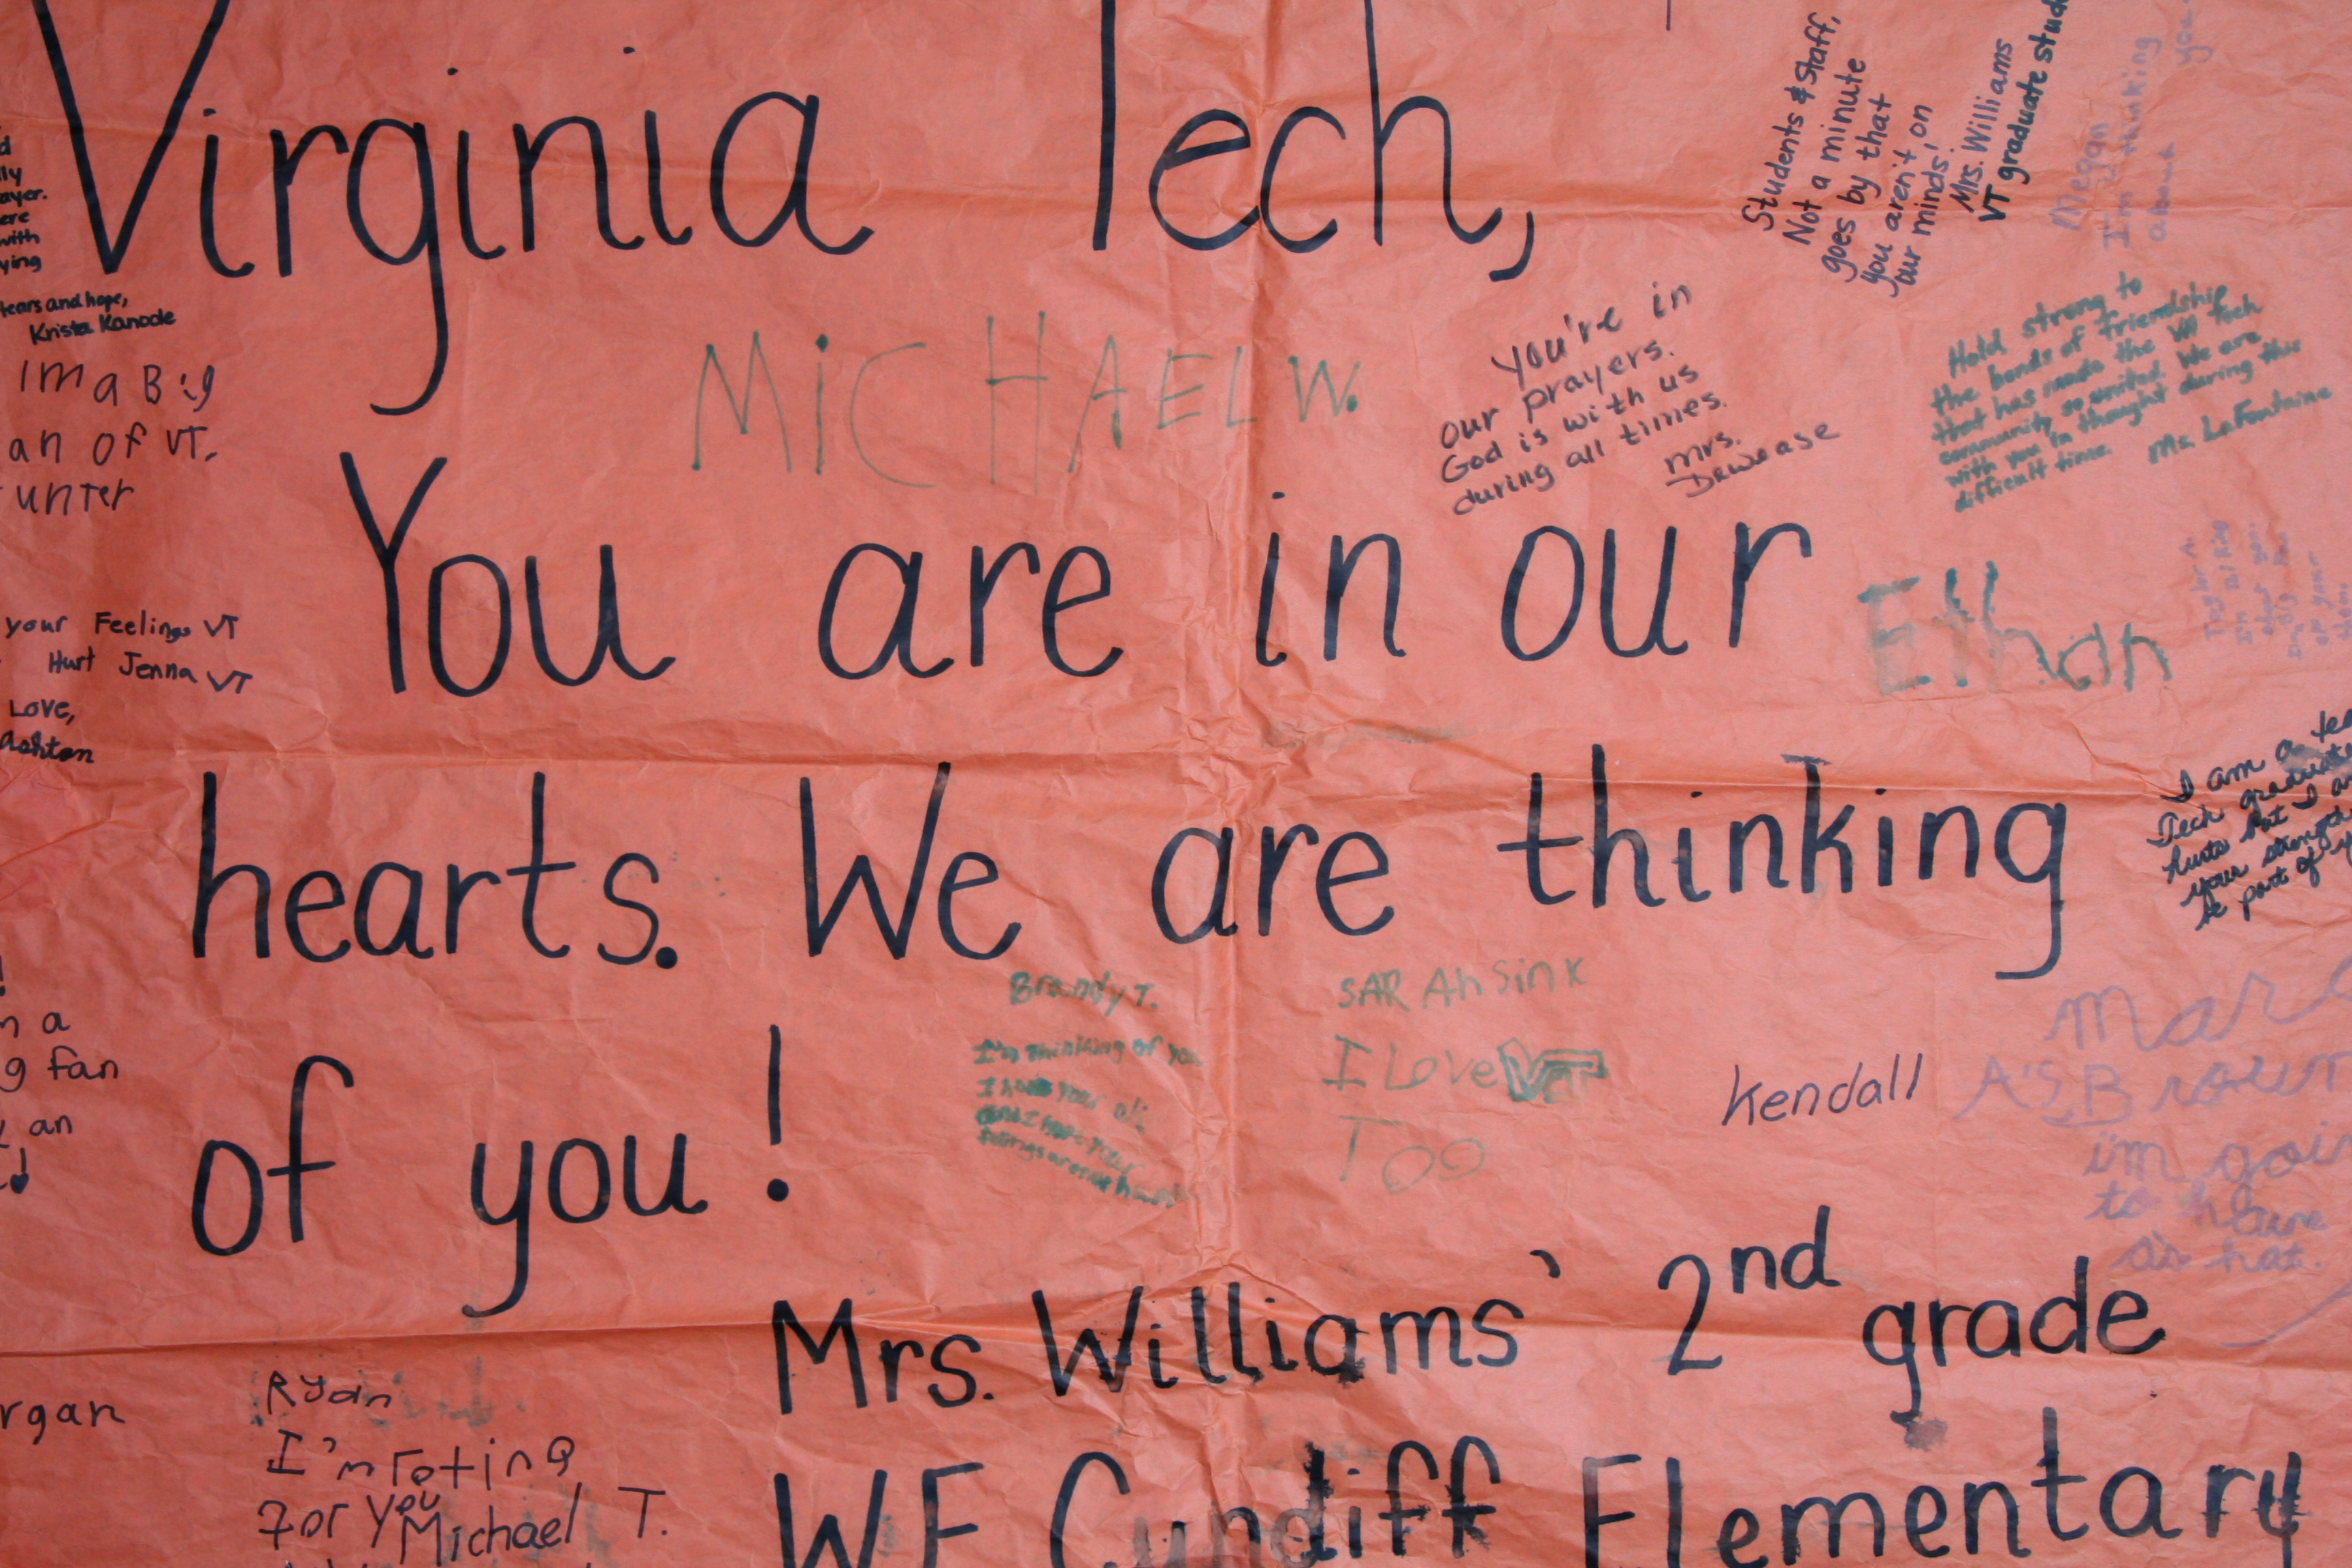 Virginia Tech,
You are in our
hearts. We are thinking
of you!
Mrs. Williams' 2nd grade
W.E. Cundiff Elementary
Students & Staff,
Not a minute
goes by that
you aren't on
our minds,
Mrs. Williams
VT graduate stud
Megan
I'm thinking
about you
MiCHAEL W.
You're in
our prayers.
God is with us
during all times.
Mrs.
Dewease
Hold strong to
the bonds of friendship
that has made the VA Tech
community so united. We are
with you in thought during this
difficult time.
Ms. LaFontaine
Ethan
I am a
Tech graduate
hurts but I a
your strength
be part of y
ayer.
ere
with
ying
tears and hope,
Krista Kanode
Im a Big
an of VT.
unter
your Feelings VT
Hurt Jenna VT
Love,
Ashton
n a
g fan
an
rgan
Brandy T.
I'm thinking of you
I hope your ok
and I hope your
feelings
SARAh Sink
I Love VT
Too
Kendall
A's Brown
i'm goin
to have
a's hat.
Ryan
I'm roting
for you
Michael T.